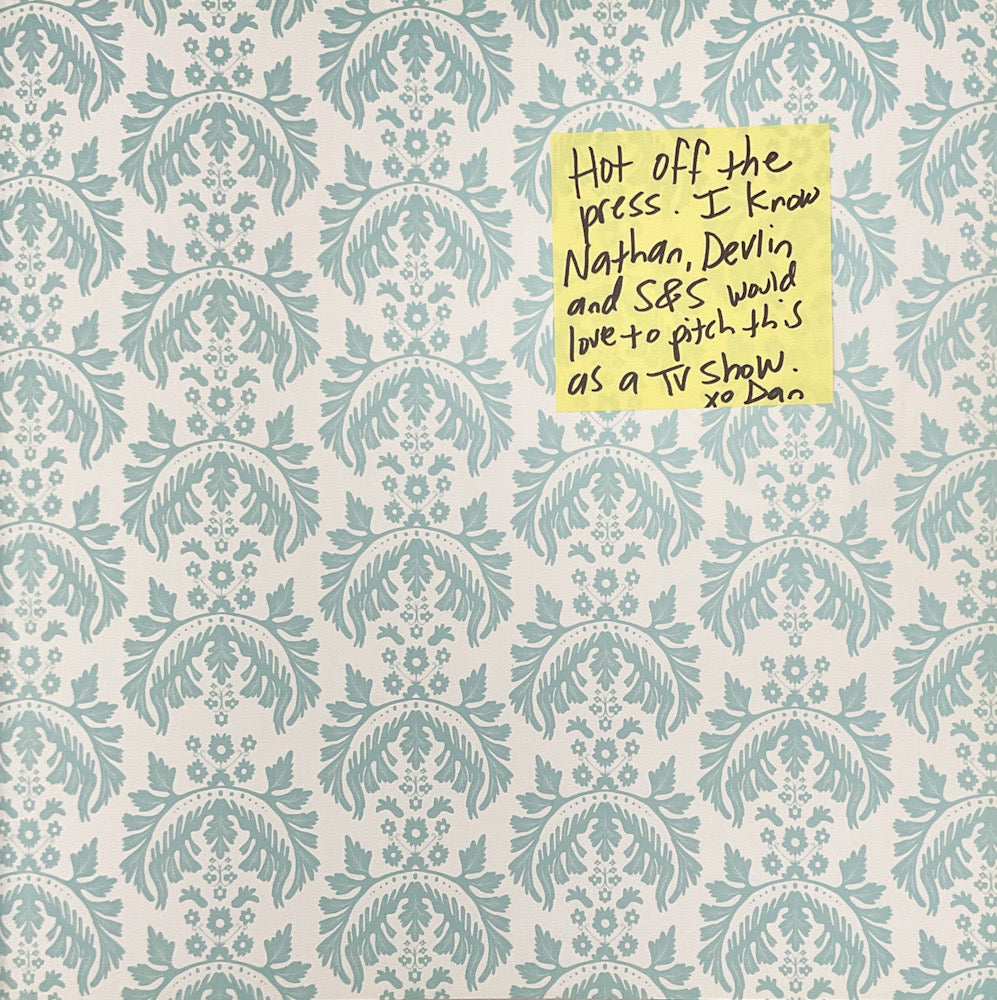 Hot off the
press. I know
Nathan, Devlin
and S&S would
love to pitch this
as a TV show.
xo Dan